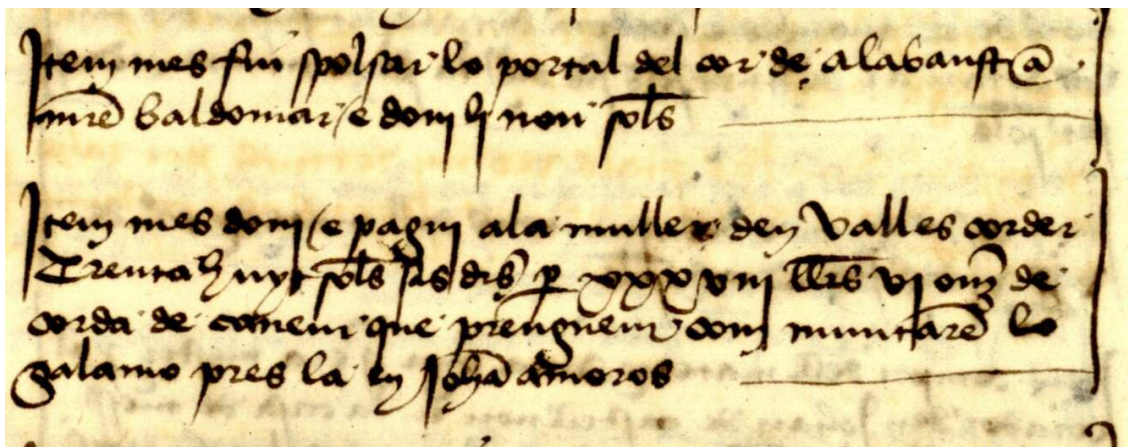 Item mes fiu spolsar lo portal del cor de alabaustr a
mre baldomar e doni li nou sols
Item mes doni e pagui ala muller den Valles corder
Trenta huyt sols sis drs per xxxviii llrs vi onz de
corda de canem que prenguem com muntare lo
salamo pres la en Joha amoros